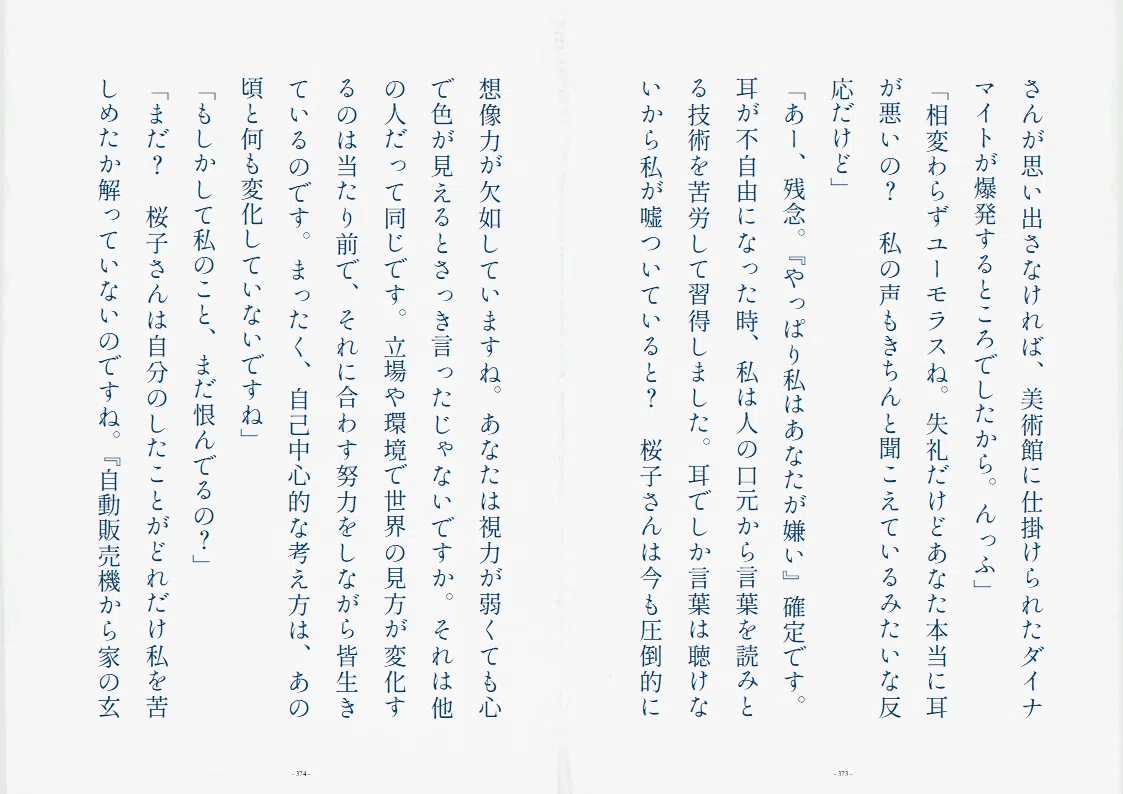 さんが思い出さなければ、美術館に仕掛けられたダイナ
マイトが爆発するところでしたから。んっふ」
「相変わらずユーモラスね。失礼だけどあなた本当に耳
が悪いの？　私の声もきちんと聞こえているみたいな反
応だけど」
「あー、残念。『やっぱり私はあなたが嫌い』確定です。
耳が不自由になった時、私は人の口元から言葉を読みと
る技術を苦労して習得しました。耳でしか言葉は聴けな
いから私が嘘ついていると？　桜子さんは今も圧倒的に
- 373 -
想像力が欠如していますね。あなたは視力が弱くても心
で色が見えるとさっき言ったじゃないですか。それは他
の人だって同じです。立場や環境で世界の見方が変化す
るのは当たり前で、それに合わす努力をしながら皆生き
ているのです。まったく、自己中心的な考え方は、あの
頃と何も変化していないですね」
「もしかして私のこと、まだ恨んでるの？」
「まだ？　桜子さんは自分のしたことがどれだけ私を苦
しめたか解っていないのですね。『自動販売機から家の玄
- 374 -